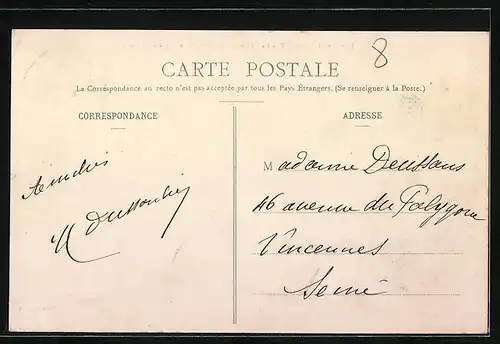 8
CARTE POSTALE
La Correspondance au recto n'est pas acceptée par tous les Pays Étrangers. (Se renseigner à la Poste.)
CORRESPONDANCE
ADRESSE
Madame Deussans
46 avenue du Polygone
Vincennes
Seine